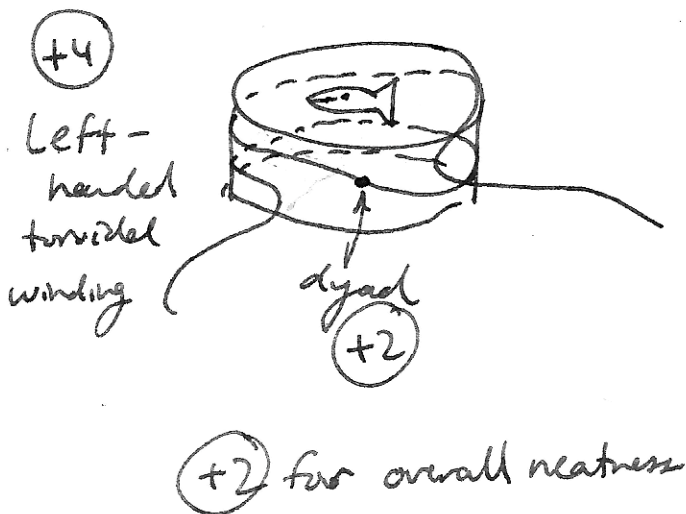 +4
Left-
handed
toroidal
winding
dyad
+2
+2 for overall neatness